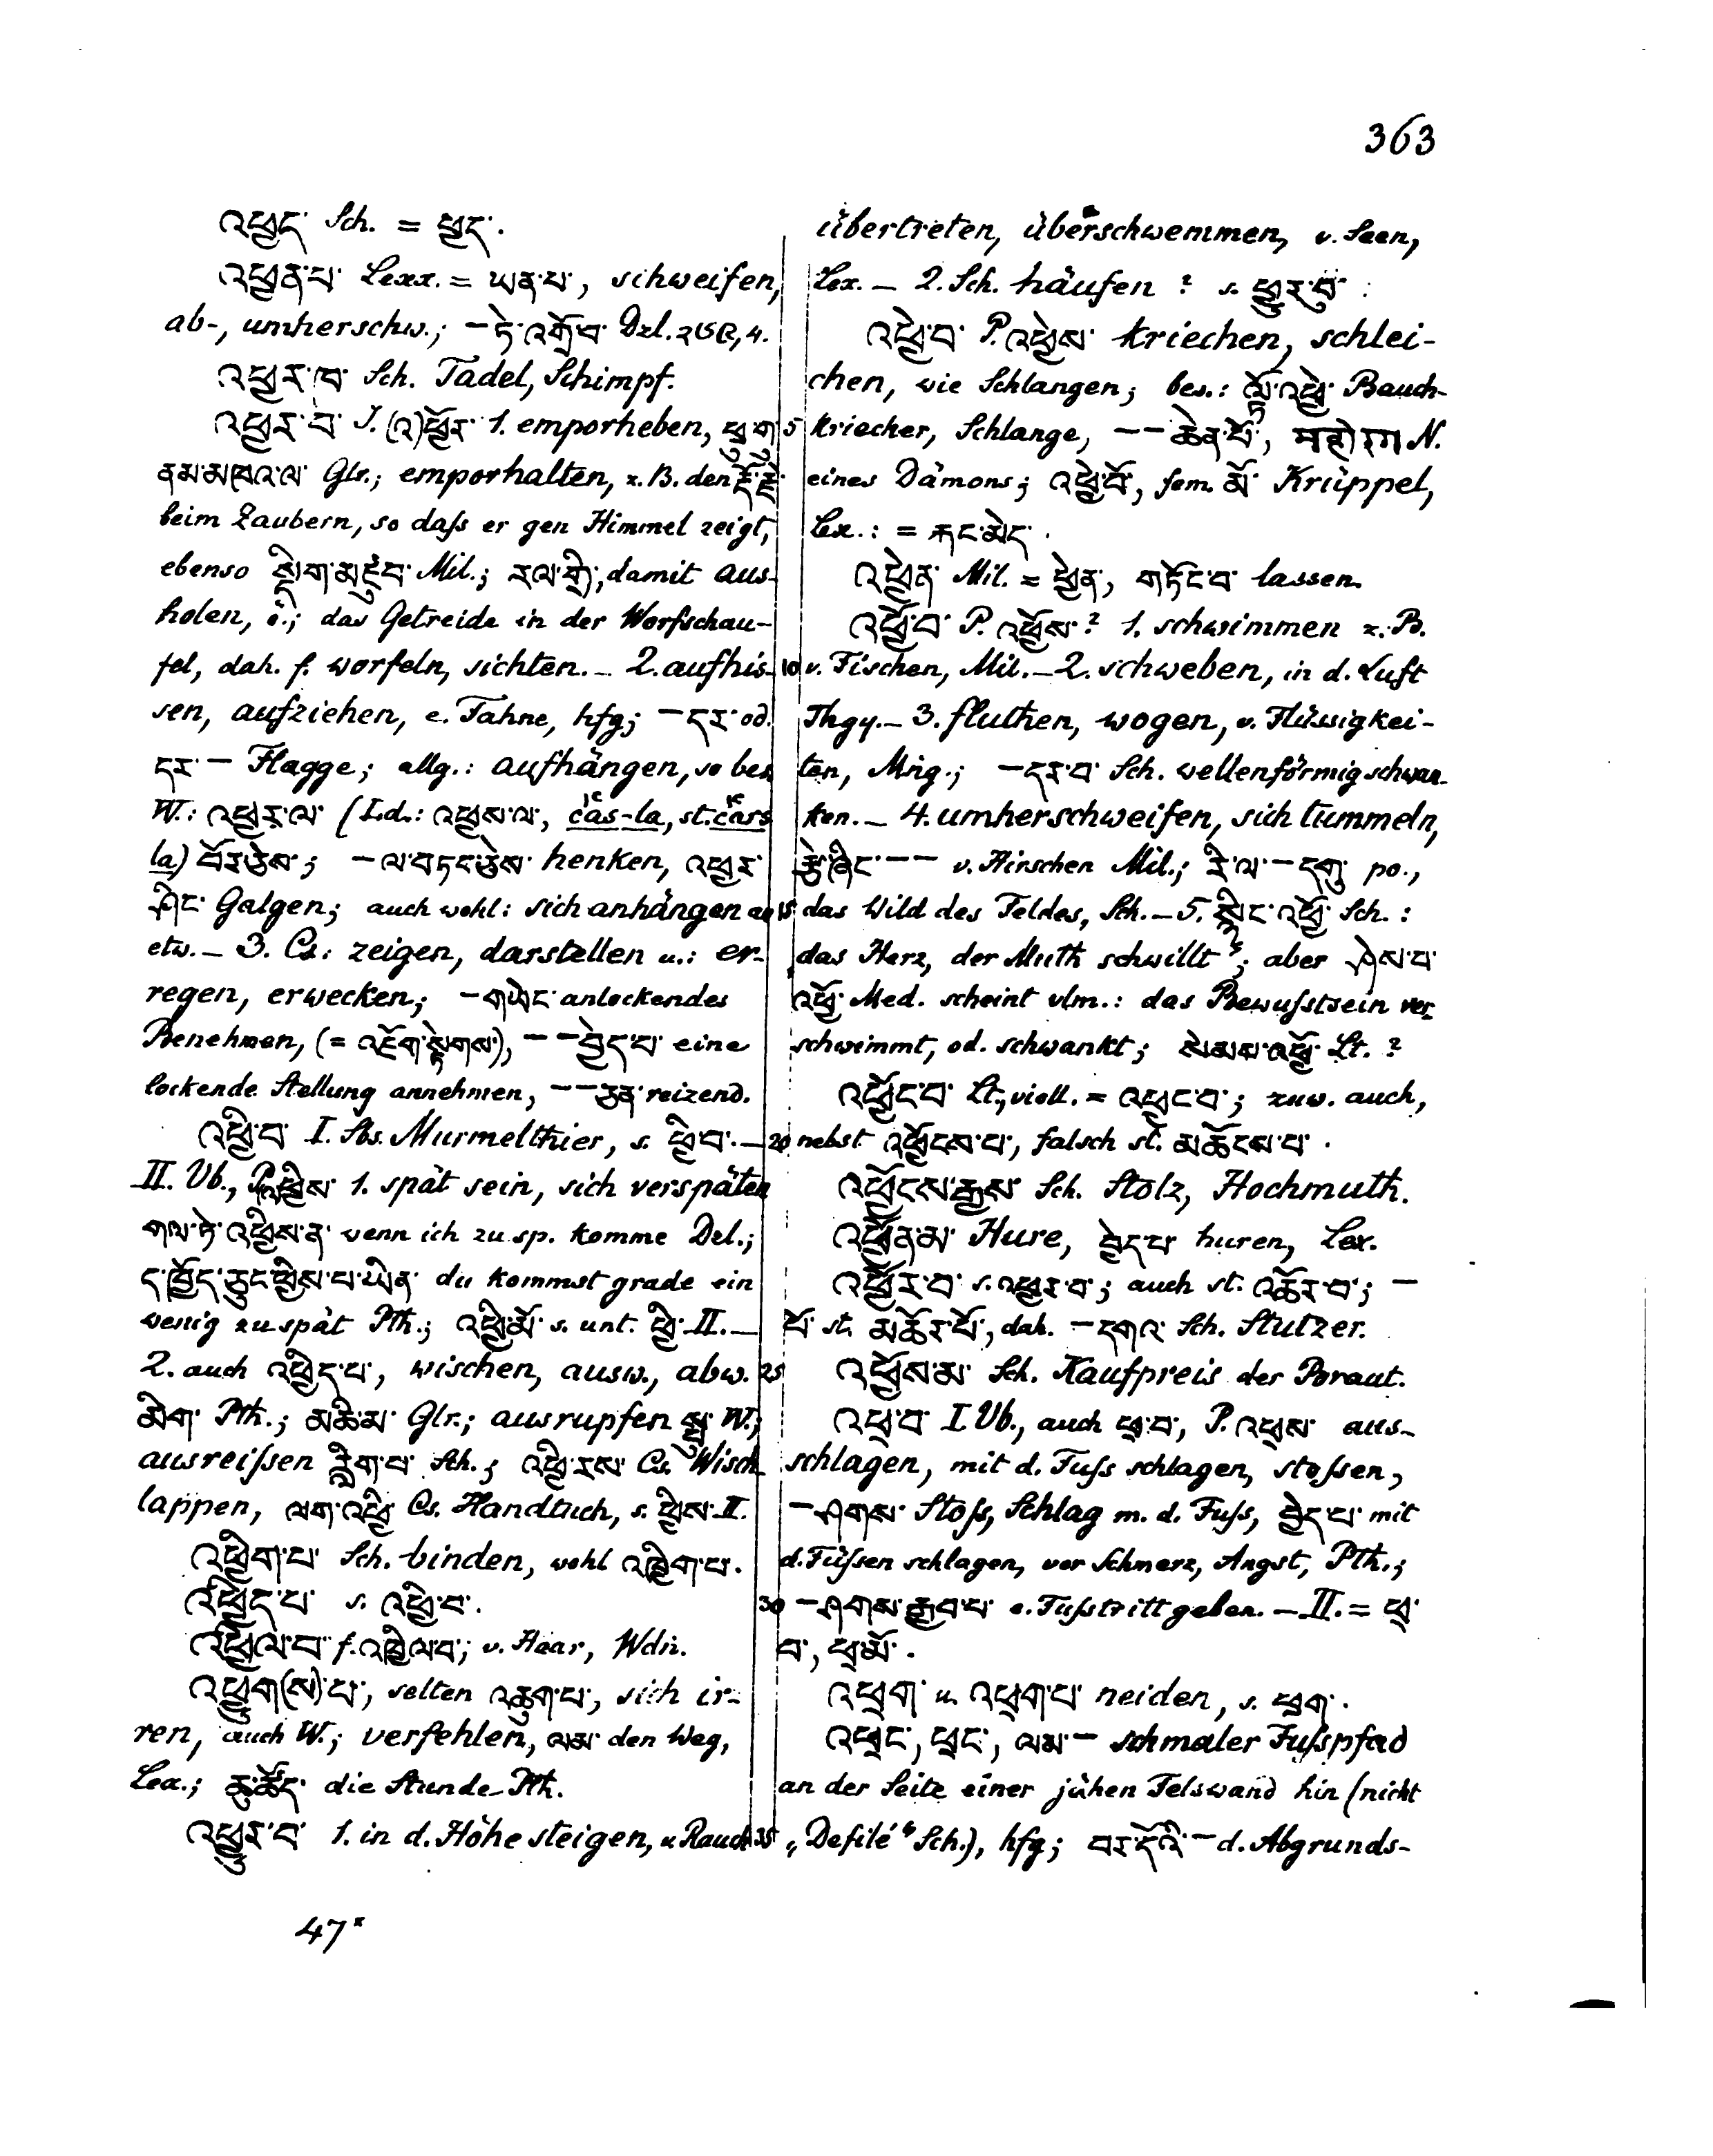 363
འཕྱད་ Sch. = ཕྱད་.
འཕྱན་པ་ Lexx. = ཡན་པ་, schweifen,
ab-, umherschw.; – ཏེ་འགྲོ་བ་ Dzl. ༢༧༩, 4.
འཕྱར་ཁ་ Sch. Tadel, Schimpf.
འཕྱར་བ་ I. (འ)ཕྱོར་ 1. emporheben, ཕྱག་
ནམ་མཁའ་ལ་ Glr.; emporhalten, z. B. den རྡོ་རྗེ་
beim Zaubern, so daſs er gen Himmel zeigt,
ebenso སྡིག་མཛུབ་ Mil.; རལ་གྲི་, damit aus-
holen, ö.; das Getreide in der Worfschau-
fel, dah. f. worfeln, sichten. – 2. aufhis-
sen, aufziehen, e. Fahne, hfg; – དར་ od.
དར་ – Flagge; allg.: aufhängen, so bes.
W.: འཕྱར་ལ་ (Ld.: འཕྱས་ལ་, čas-la, st. čars
la) བོར་ཅེས་; – ལ་བཏང་ཅེས་ henken, འཕྱར་
ཤིང་ Galgen; auch wohl: sich anhängen an
etw. – 3. Cs: zeigen, darstellen u.: er-
regen, erwecken; – གཡེང་ anlockendes
Benehmen, (= འཇོག་སྟེགས་), – – བྱེད་པ་ eine
lockende Stellung annehmen, – – ཅན་ reizend.
འཕྱི་བ་ I. Sbs. Murmelthier, s. ཕྱི་བ་. –
II. Vb., P. འཕྱིས་ 1. spät sein, sich verspäten
གལ་ཏེ་འཕྱིས་ན་ wenn ich zu sp. komme Dzl.;
ད་ཁྱོད་ཅུང་ཕྱིས་པ་ཡིན་ du kommst grade ein
wenig zu spät Pth.; འཕྱི་མོ་ s. unt. ཕྱི་ II. –
2. auch འཕྱིད་པ་, wischen, ausw., abw.
མིག་ Pth.; མཆི་མ་ Glr.; ausrupfen སྤུ་ W.;
ausreiſsen Sch.; འཕྱི་རས་ Cs. Wisch-
lappen, ལག་འཕྱི་ Cs. Handtuch, s. ཕྱིས་ II.
འཕྱིག་པ་ Sch. binden, wohl འཁྱིག་པ་.
འཕྱིད་པ་ s. འཕྱི་བ་.
འཕྱིལ་བ་ f. འཁྱིལ་བ་; v. Haar, Wdn.
འཕྱུག(ས)་པ་, selten འཆུག་པ་, sich ir-
ren, auch W.; verfehlen, ལམ་ den Weg,
Lex.; ཆུ་ཚོད་ die Stunde Pth.
འཕྱུར་བ་ 1. in d. Höhe steigen, v. Rauch
47*
übertreten, überschwemmen, v. Seen,
Lex. – 2. Sch. häufen? s. ཕྱུར་བུ་
འཕྱེ་བ་ P. འཕྱེས་ kriechen, schlei-
chen, wie Schlangen; bes.: ལྟོ་འཕྱེ་ Bauch-
5 kriecher, Schlange, – – ཆེན་པོ་, महोरग N.
eines Dämons; འཕྱེ་བོ་, fem. མོ་ Krüppel,
Lex.: = རྐང་མེད་.
འཕྱེན་ Mil. = ཕྱེན་, གཏོང་བ་ lassen.
འཕྱོ་བ་ P. འཕྱོས་? 1. schwimmen z. B.
10 v. Fischen, Mil. – 2. schweben, in d. Luft
Thgy. – 3. fluthen, wogen, v. Flüssigkei-
ten, Mng.; – དར་བ་ Sch. wellenförmig schwan-
ken. – 4. umherschweifen, sich tummeln,
རྩེ་ཞིང་ – – v. Hirschen Mil.; རི་ལ་ – དགུ་ po.,
15 das Wild des Feldes, Sch. – 5. སྙིང་འཕྱོ་ Sch.:
das Herz, der Muth schwillt?; aber ཤེས་པ་
འཕྱོ་ Med. scheint vlm.: das Bewuſstsein ver-
schwimmt, od. schwankt; སེམས་འཕྱོ་ Lt.?
འཕྱོང་བ་ Lt., viell. = འཕྱང་བ་; zuw. auch,
20 nebst འཕྱོངས་པ་, falsch st. མཆོངས་པ་.
འཕྱོངས་རྒྱས་ Sch. Stolz, Hochmuth.
འཕྱོན་མ་ Hure, བྱེད་པ་ huren, Lex.
འཕྱོར་བ་ s. འཕྱར་བ་; auch st. འཆོར་བ་; –
པོ་ st. མཆོར་པོ་, dah. – དགའ་ Sch. Stutzer.
25 འཕྱོས་མ་ Sch. Kaufpreis der Braut.
འཕྲ་བ་ I. Vb., auch ཕྲ་བ་, P. འཕྲས་ aus-
schlagen, mit d. Fuss schlagen, stoſsen,
– ཤགས་ Stoſs, Schlag m. d. Fuſs, བྱེད་པ་ mit
d. Füſsen schlagen, vor Schmerz, Angst, Pth.;
30 – ཤགས་རྒྱབ་པ་ e. Fuſstritt geben. – II. = ཕྲ་
བ་, ཕྲ་མོ་.
འཕྲག་ u. འཕྲག་པ་ neiden, s. ཕྲག་.
འཕྲང་, ཕྲང་, ལམ་ – schmaler Fuſspfad
an der Seite einer jähen Felswand hin (nicht
35 „Defilé“ Sch.), hfg; བར་དོའི་ – d. Abgrunds-